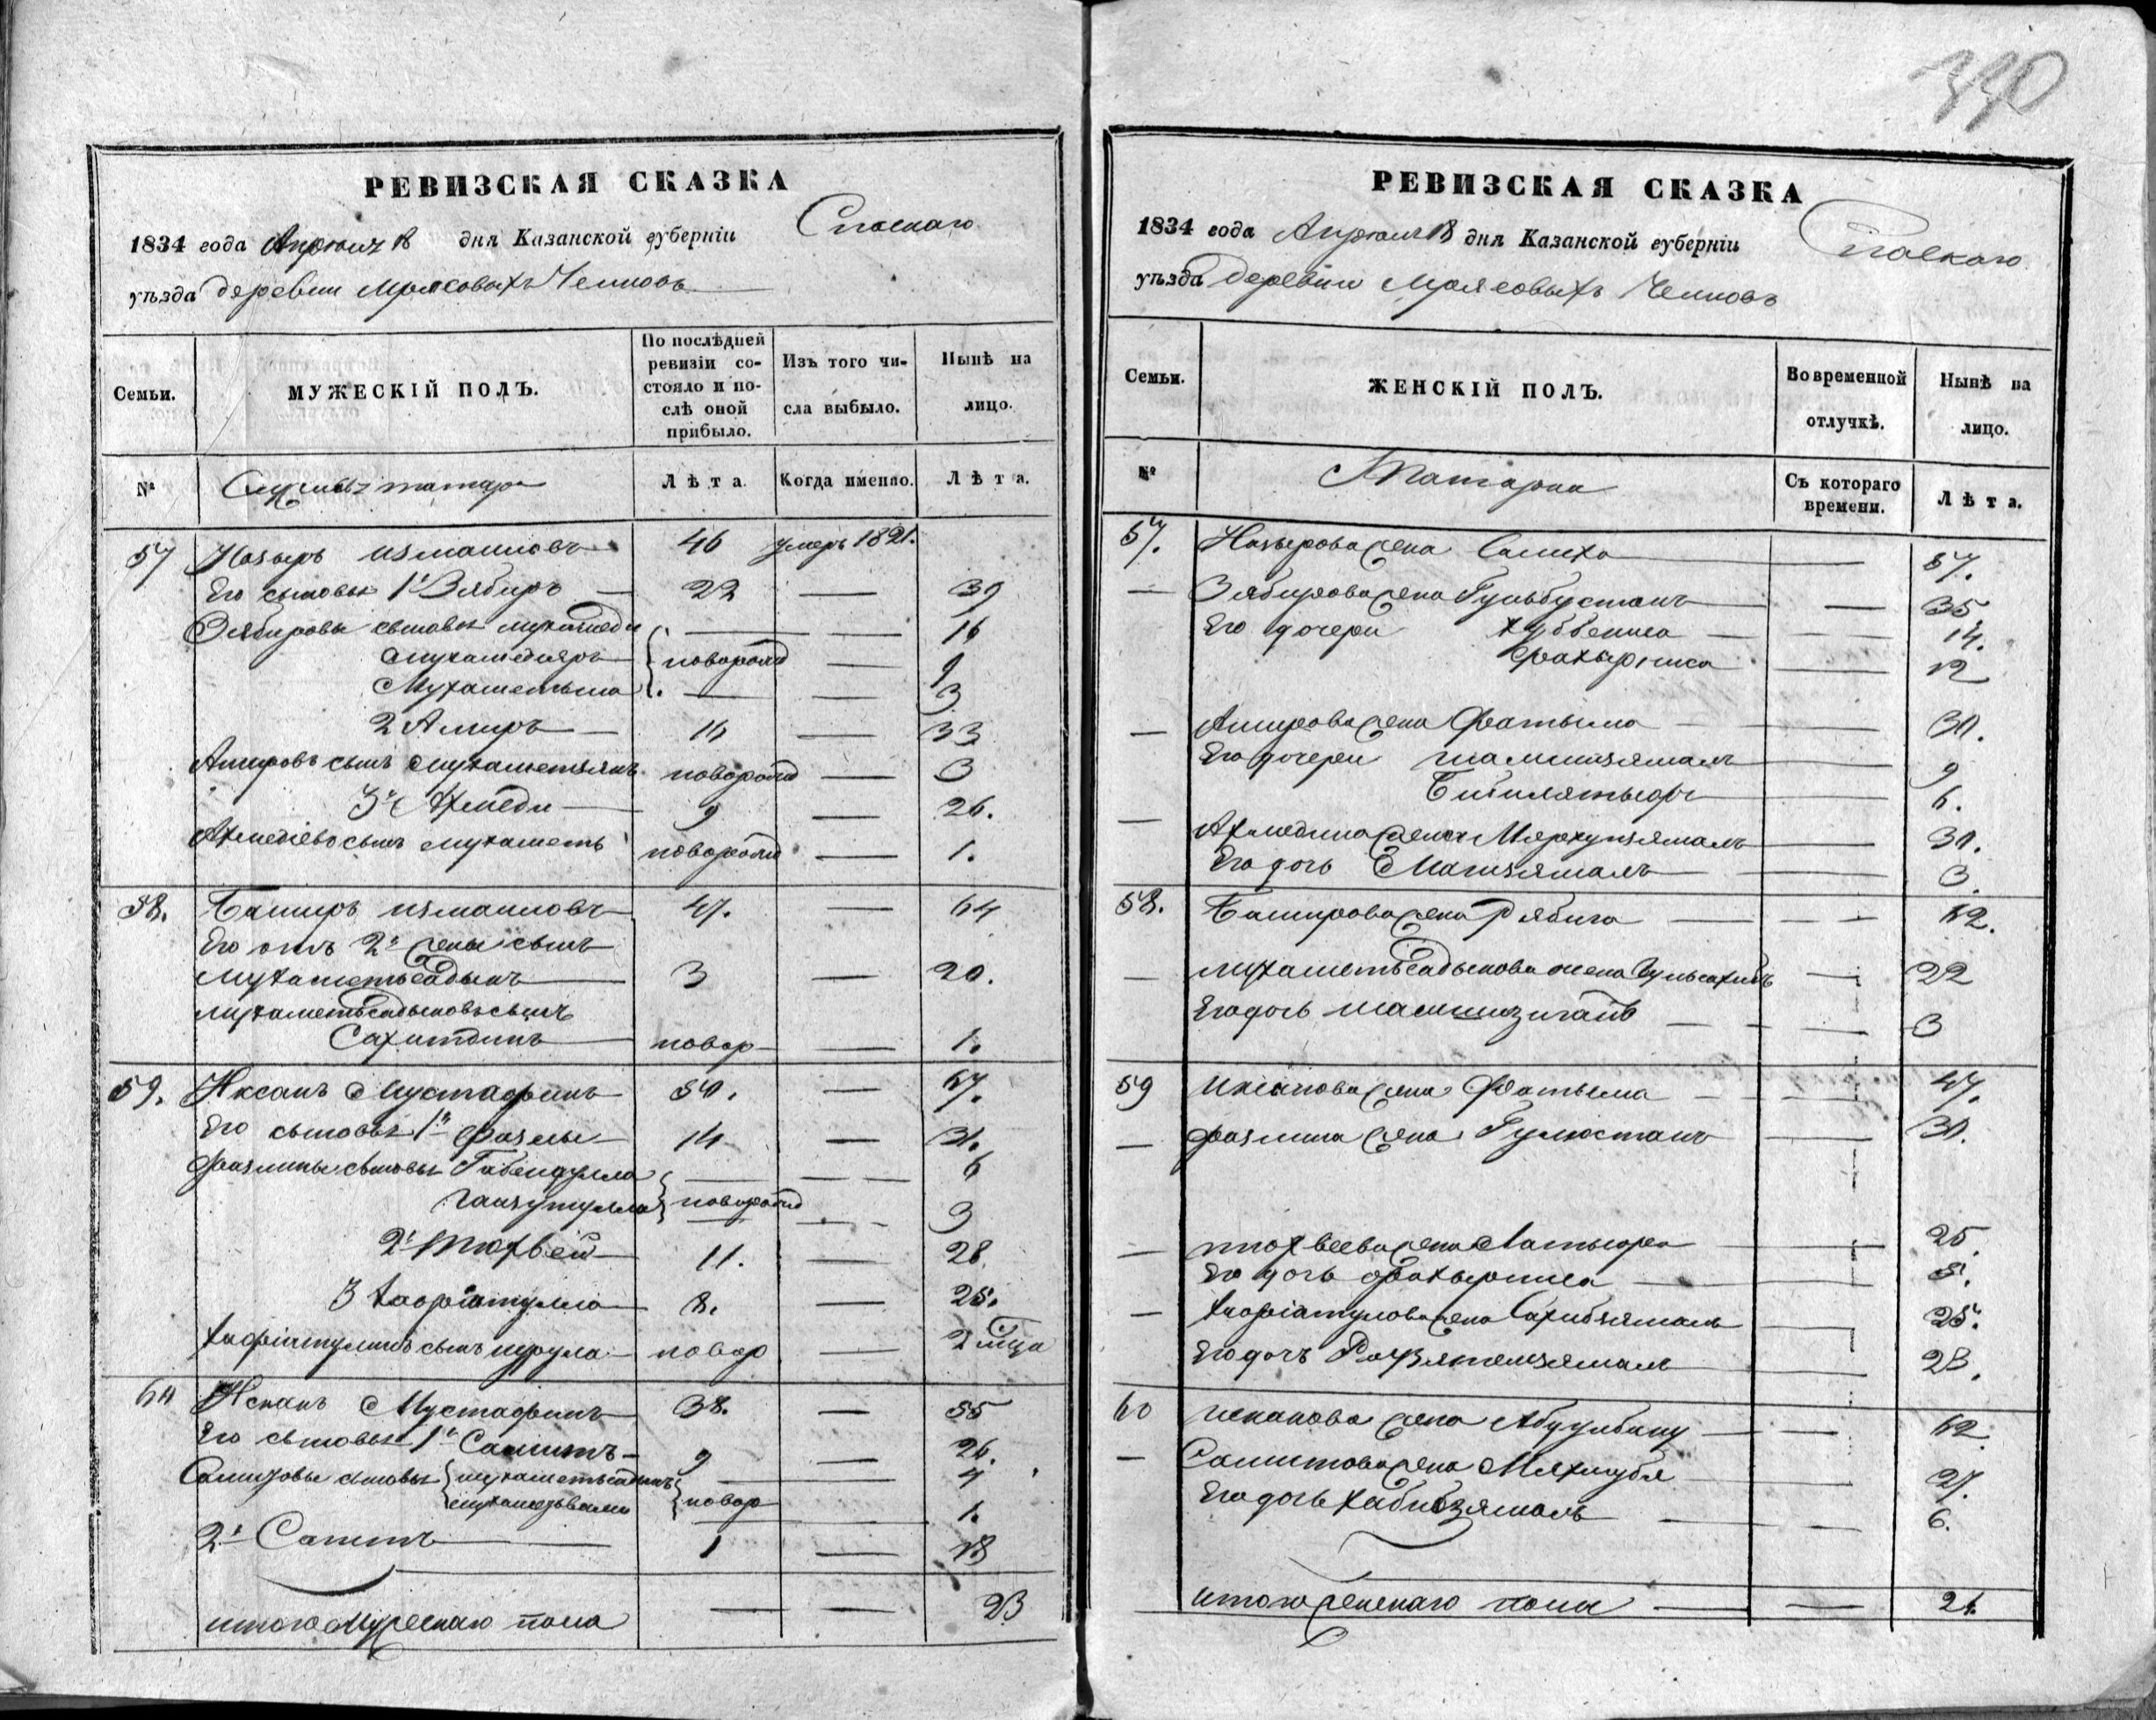 330
РЕВИЗСКАЯ СКАЗКА
1834 года Апреля 18 дня Казанской губернiи Спаскаго
уѣзда деревни Моясовыхъ Челновъ
Семьи.
МУЖЕСКIЙ ПОЛЪ.
По послѣдней ревизiи состояло и послѣ оной прибыло.
Изъ того числа выбыло.
Нынѣ на лицо.
№
Служивы татара
Лѣта
Когда именно.
Лѣта.
57 Назыръ Измаиловъ 46 умеръ 1821.
Его сыновья 1й Зябиръ — 22 — 39
Зябировы сыновья Мухамеди — — 16
Мухамедияръ новорожд — 9
Мухаметша — — 3
2 Амиръ — 16 — 33
Амировъ сынъ Мухаметзянъ новорожд — 3
3й Ахмеди — 9 — 26.
Ахмедiевъ сынъ Мухаметь новорожд — 1.
58. Баширъ Измаиловъ 47. — 64
Его отъ 2й жены сынъ
Мухаметьсадыкъ — 3 — 20.
Мухаметьсадыковъ сынъ
Сахитдинъ — новор — 1.
59. Иксанъ Мустафинъ 50. — 67.
Его сыновья 1й Фазлы — 14 — 31.
Фазлины сыновья Габейдулла — — 6
новорожд — 3
2й Тюхвей — 11. — 28
3 Хафiатулла — 8. — 25.
Хафiатулинъ сынъ — новор — 2 мца
60 Исканъ Мустафинъ 38. — 55
Его сыновья 1й Салитъ — 9 — 26.
сыновья Мухаметьсадыкъ — 4
новор — 1.
2й Сатитъ — 1 — 18
итого мужескаго пола — — 23
РЕВИЗСКАЯ СКАЗКА
1834 года Апреля 18 дня Казанской губернiи Спаскаго
уѣзда деревни Моясовыхъ Челновъ
Семьи.
ЖЕНСКIЙ ПОЛЪ.
Во временной отлучкѣ.
Нынѣ на лицо.
№
Татарки
Съ котораго времени.
Лѣта.
57. Назырова жена Салиха — — 57.
— Зябирова жена Гульбустанъ — — 35
Его дочери Хуббениса — — 14.
Фахырниса — — 12
— Амирова жена Фатыма — — 30.
Его дочери Шамшизямалъ — — 9
— — 6.
— Ахмедина жена — — 30.
Его дочь — — 3.
58. Баширова жена Рябига — — 62.
— Мухаметьсадыкова жена — 22
Его дочь — — 3
59 Иксанова жена Фатыма — — 47.
— Фазлина жена Гулюстанъ — — 30.
— Тюхвеева жена Латыфа — — 25.
Его дочь Фахырниса — — 8.
— Хафiатулова жена Сахибзямалъ — — 25.
Его дочь — — 23.
60 Исканова жена — — 62.
— Салитова жена Мяхмубя — — 27.
Его дочь Хабибзямалъ — — 6.
итого женскаго пола — — 21.